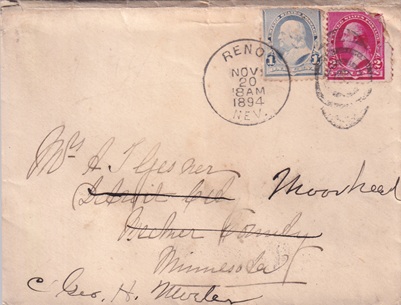 RENO
NOV
20
18AM
1894
NEV.
1 1
2 2
Mrs A T Gesner
Detroit Moorhead
Becker County
Minnesota
c Geo. H.